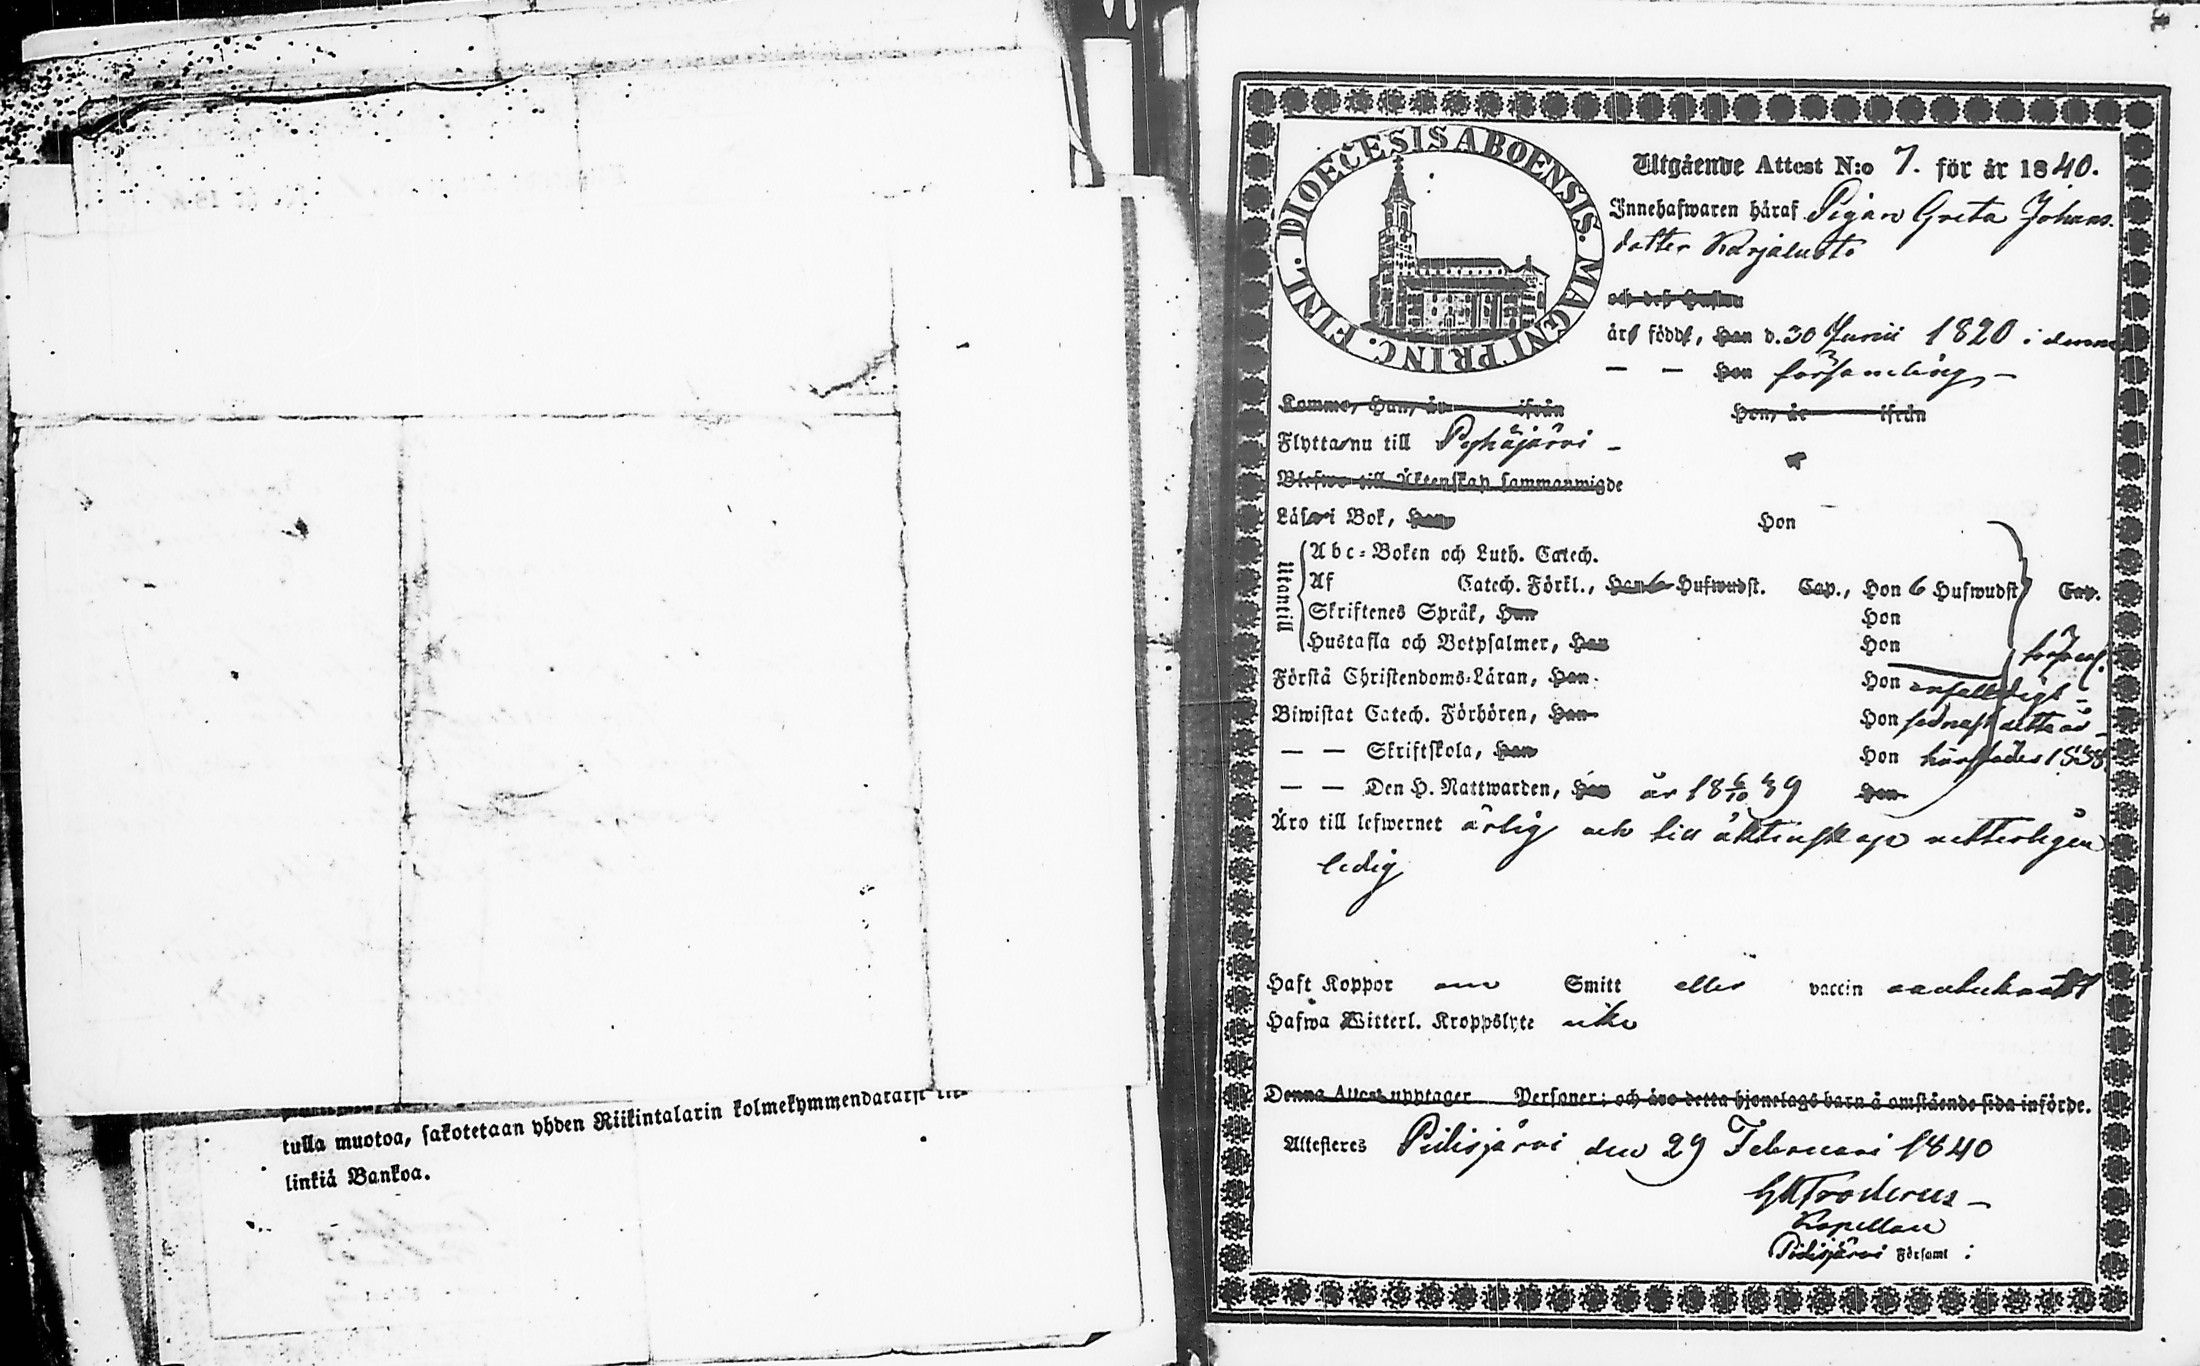 tulla muotoa, sakotetaan yhden Riikintalarin kolmekymmendarärsi
linkiä Bankoa.
DIOECESIS ABOENSIS. MAGNI PRINC. FINL.
Utgående Attest N:o 7. för år 1840.
Innehafwaren häraf Pigan Greta Johans
dotter Karjaluoto
och dess Hustru
äro födde, Han d. 30 Junii 1820 i denna
— — Hon församling –
Komme, Han, år ifrån Hon, år ifrån
Flytta nu till Pyhäjärvi –
Blefwo till Äktenskap sammanwigde
Läsa i Bok, Han Hon
Utantill
Abc-Boken och Luth. Catech.
Af Catech. Förkl., Han 6 Hufwudst. Cap., Hon 6 Hufwudst Cap.
Skriftenes Språk, Han Hon
Hustafla och Botpsalmer, Han Hon
Förstå Christendoms-Läran, Han Hon enfaldigt –
Biwistat Catech. Förhören, Han Hon sednast detta år
— — Skriftskola, Han Hon 1838
— — Den H. Nattwarden, Han år 18 6/10 39 Hon
Äro till lefwernet ärlig och till äktenskap vetterligen
ledig
Haft Koppor om Smitt eller vaccin obekant
Hafwa Witterl. Kroppslyte icke
Denna Attest upptager Personer; och äro detta hjonelags barn å omstående sida införde.
Attesteres Pidisjärvi den 29 Februari 1840
Kapellan
Pidisjärvi Församl: